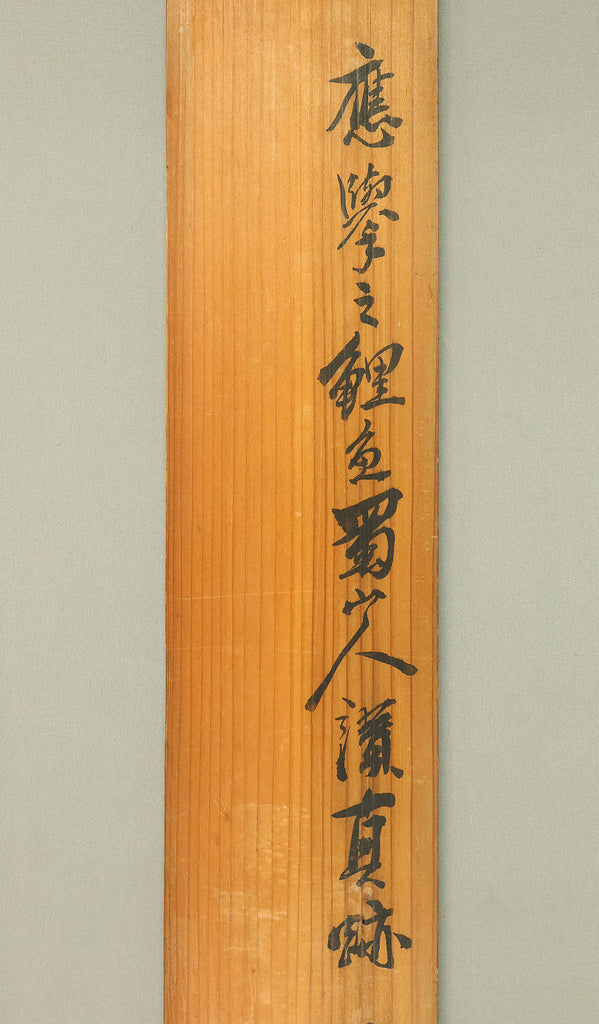 應擧之鯉魚蜀山人讃真跡